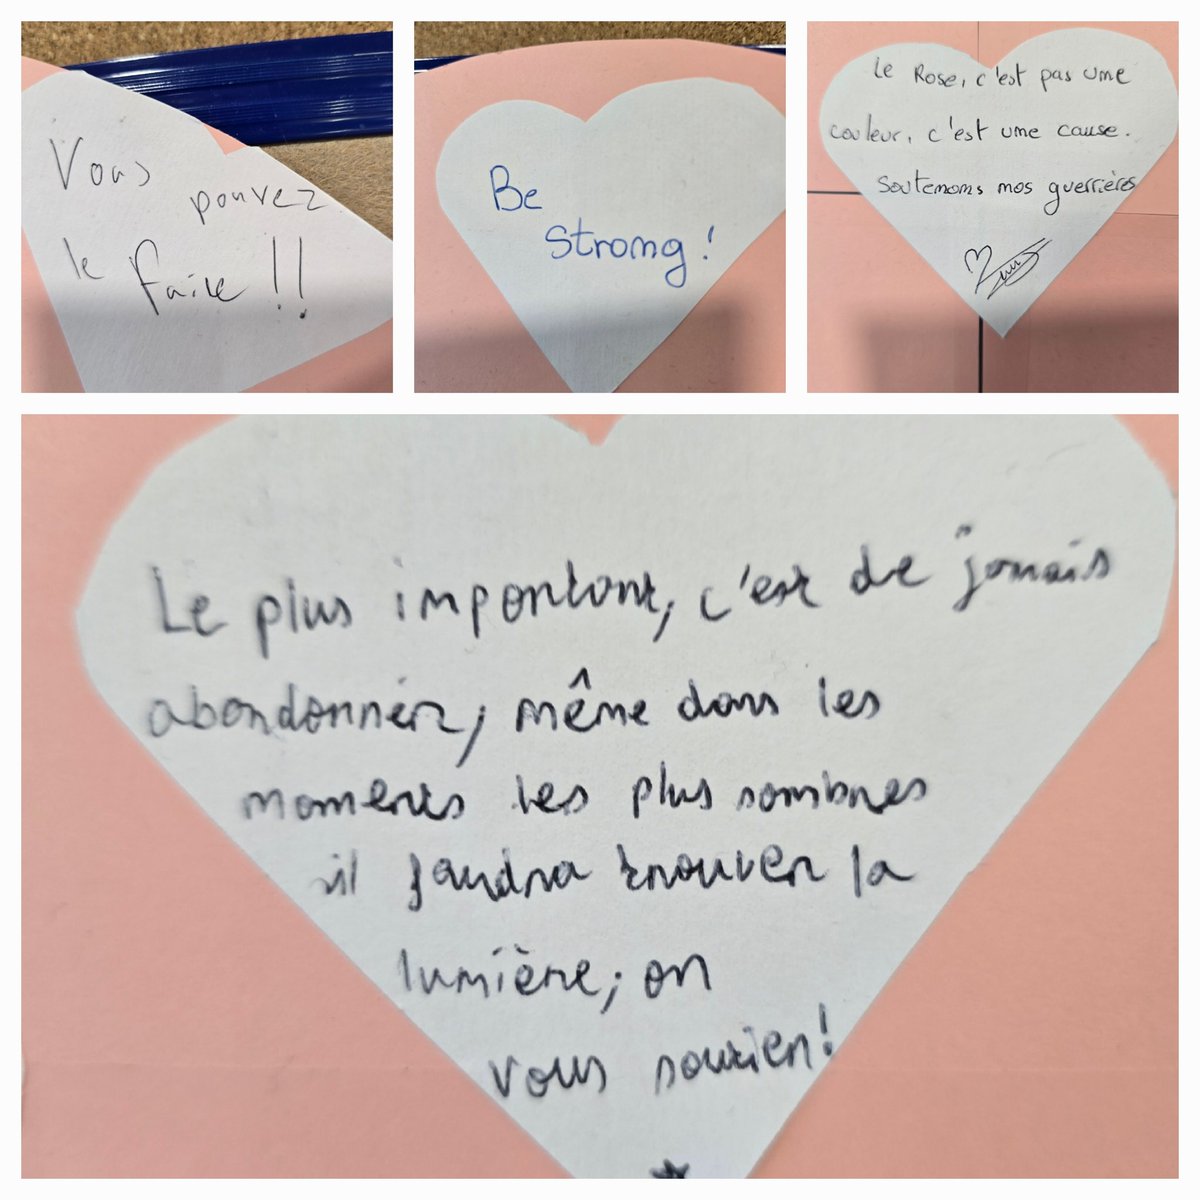 Vous
pouvez
le faire !!
Be
strong !
Le Rose, c'est pas une
couleur, c'est une cause.
Soutenons nos guerrières
Le plus important, c'est de jamais
abandonner, même dans les
moments les plus sombres
il faudra trouver la
lumière, on
vous soutien!